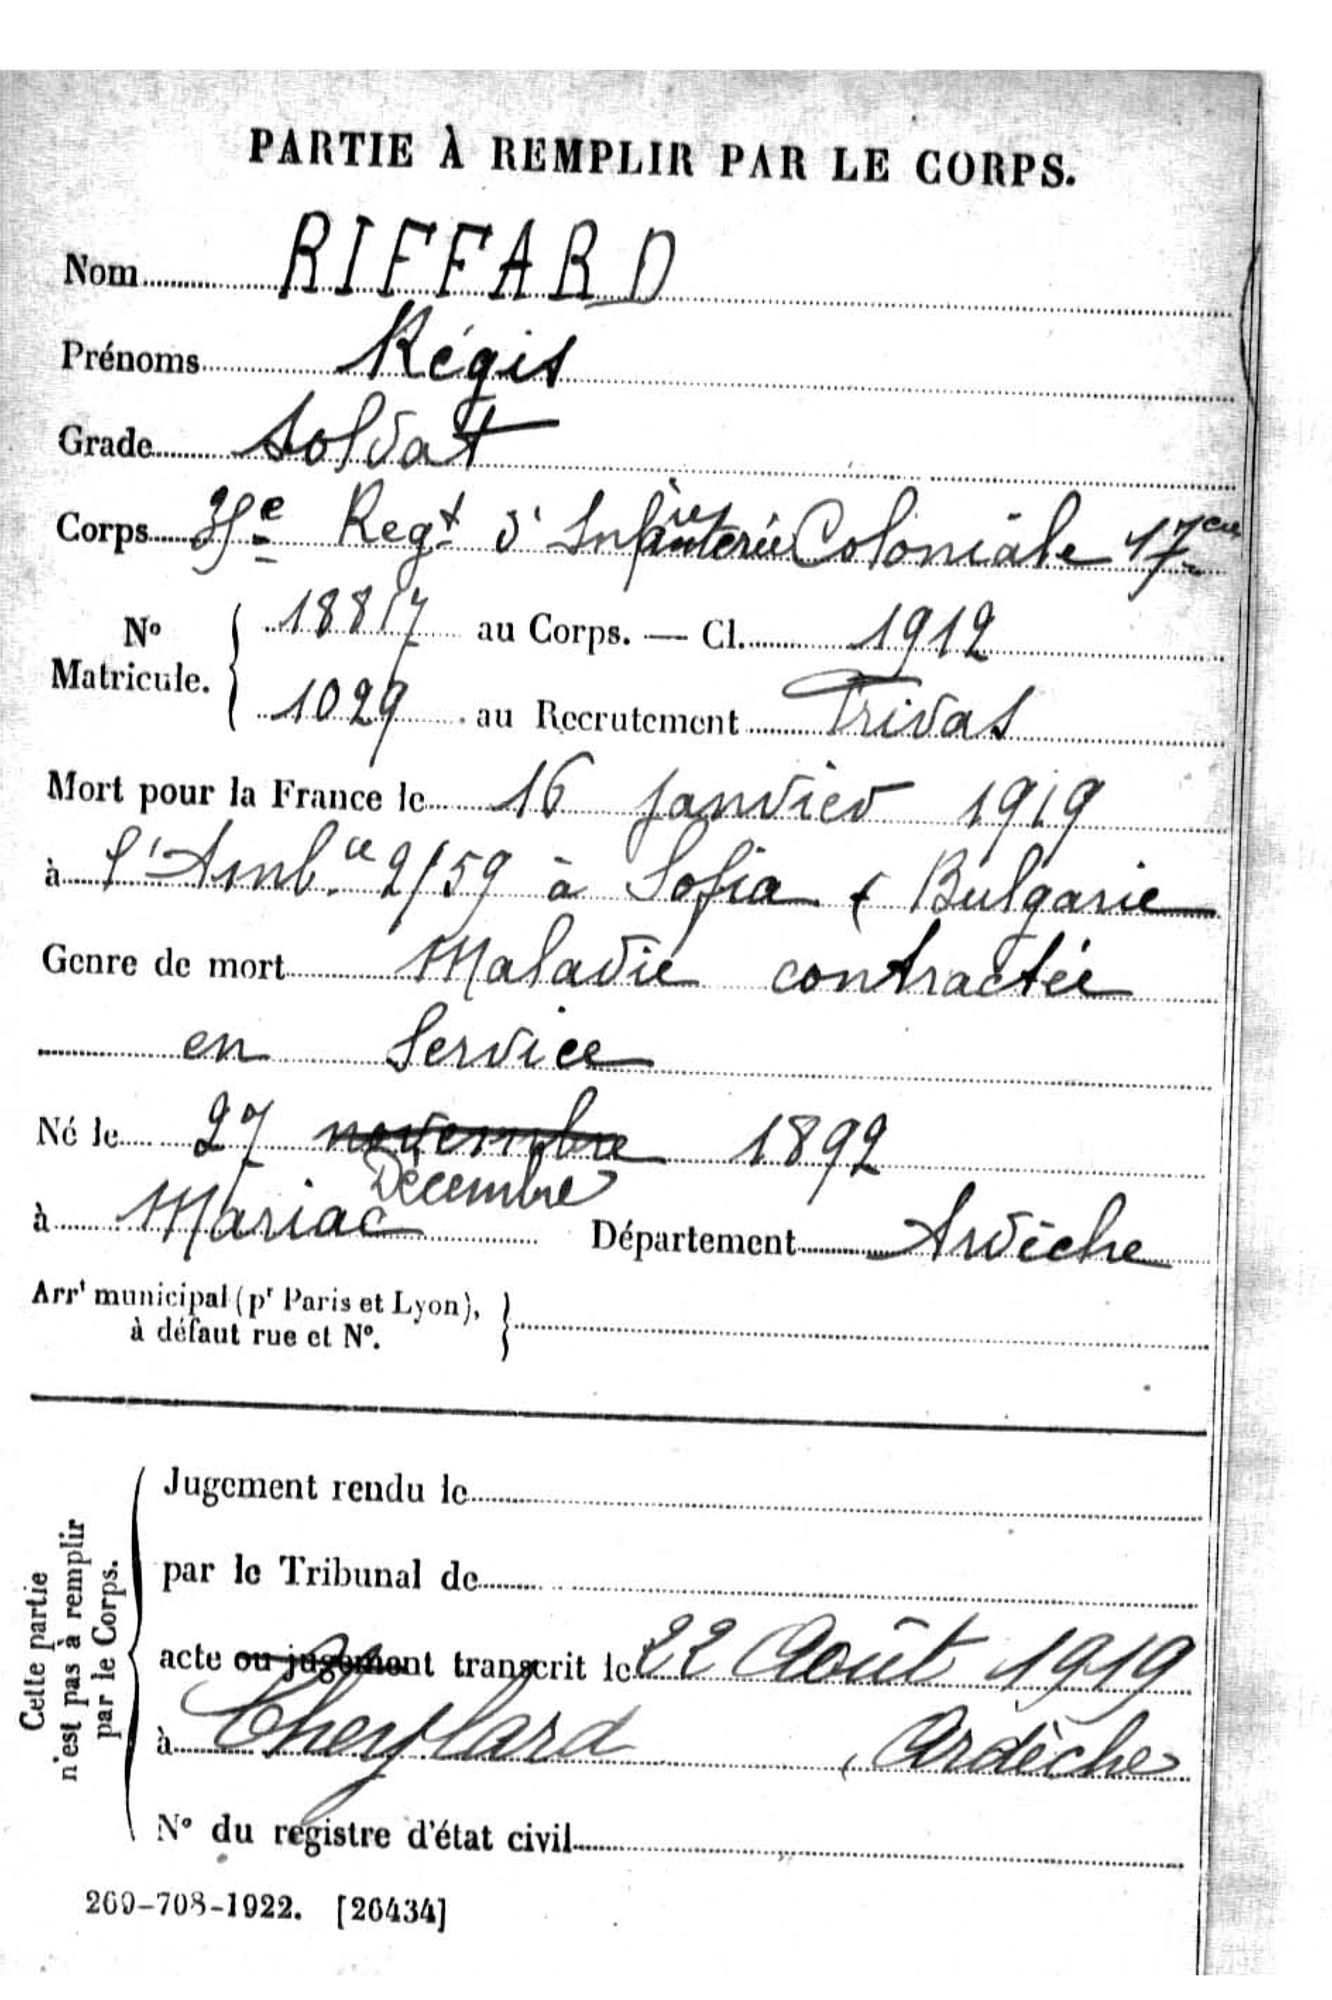 PARTIE À REMPLIR PAR LE CORPS.
Nom RIFFARD
Prénoms Régis
Grade Soldat
Corps 35e Regt d'Infanterie Coloniale 17eme
No Matricule. 18817 au Corps. — Cl. 1912
1029 au Recrutement Privas
Mort pour la France le 16 janvier 1919
à l'Ambce 2/59 à Sofia ( Bulgarie
Genre de mort Maladie contractée
en Service
Né le 27 novembre 1892
Décembre
à Mariac Département Ardèche
Arrt municipal (pr Paris et Lyon),
à défaut rue et No.
Cette partie
n'est pas à remplir
par le Corps.
Jugement rendu le
par le Tribunal de
acte ou jugement transcrit le 22 Août 1919
à Cheylard, Ardèche
No du registre d'état civil
269-708-1922. [26434]